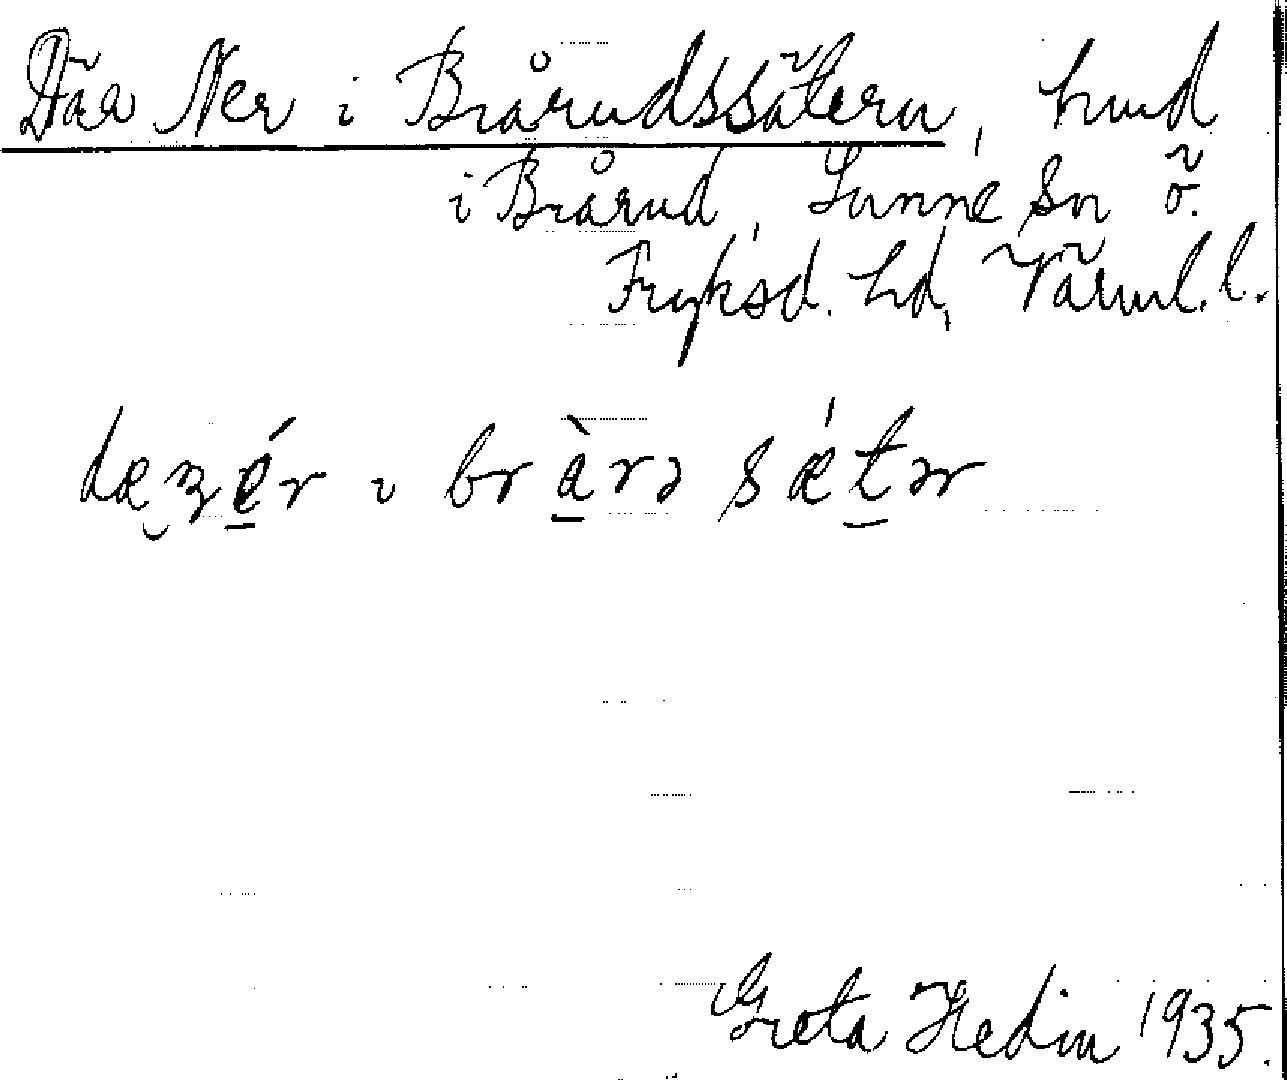 Där Ner i Brårudssätern, hmd
i Brårud, Sunne sn ö.
Fryksd. hd, Värml. l.
i brårə sǽtər
Greta Hedin 1935.